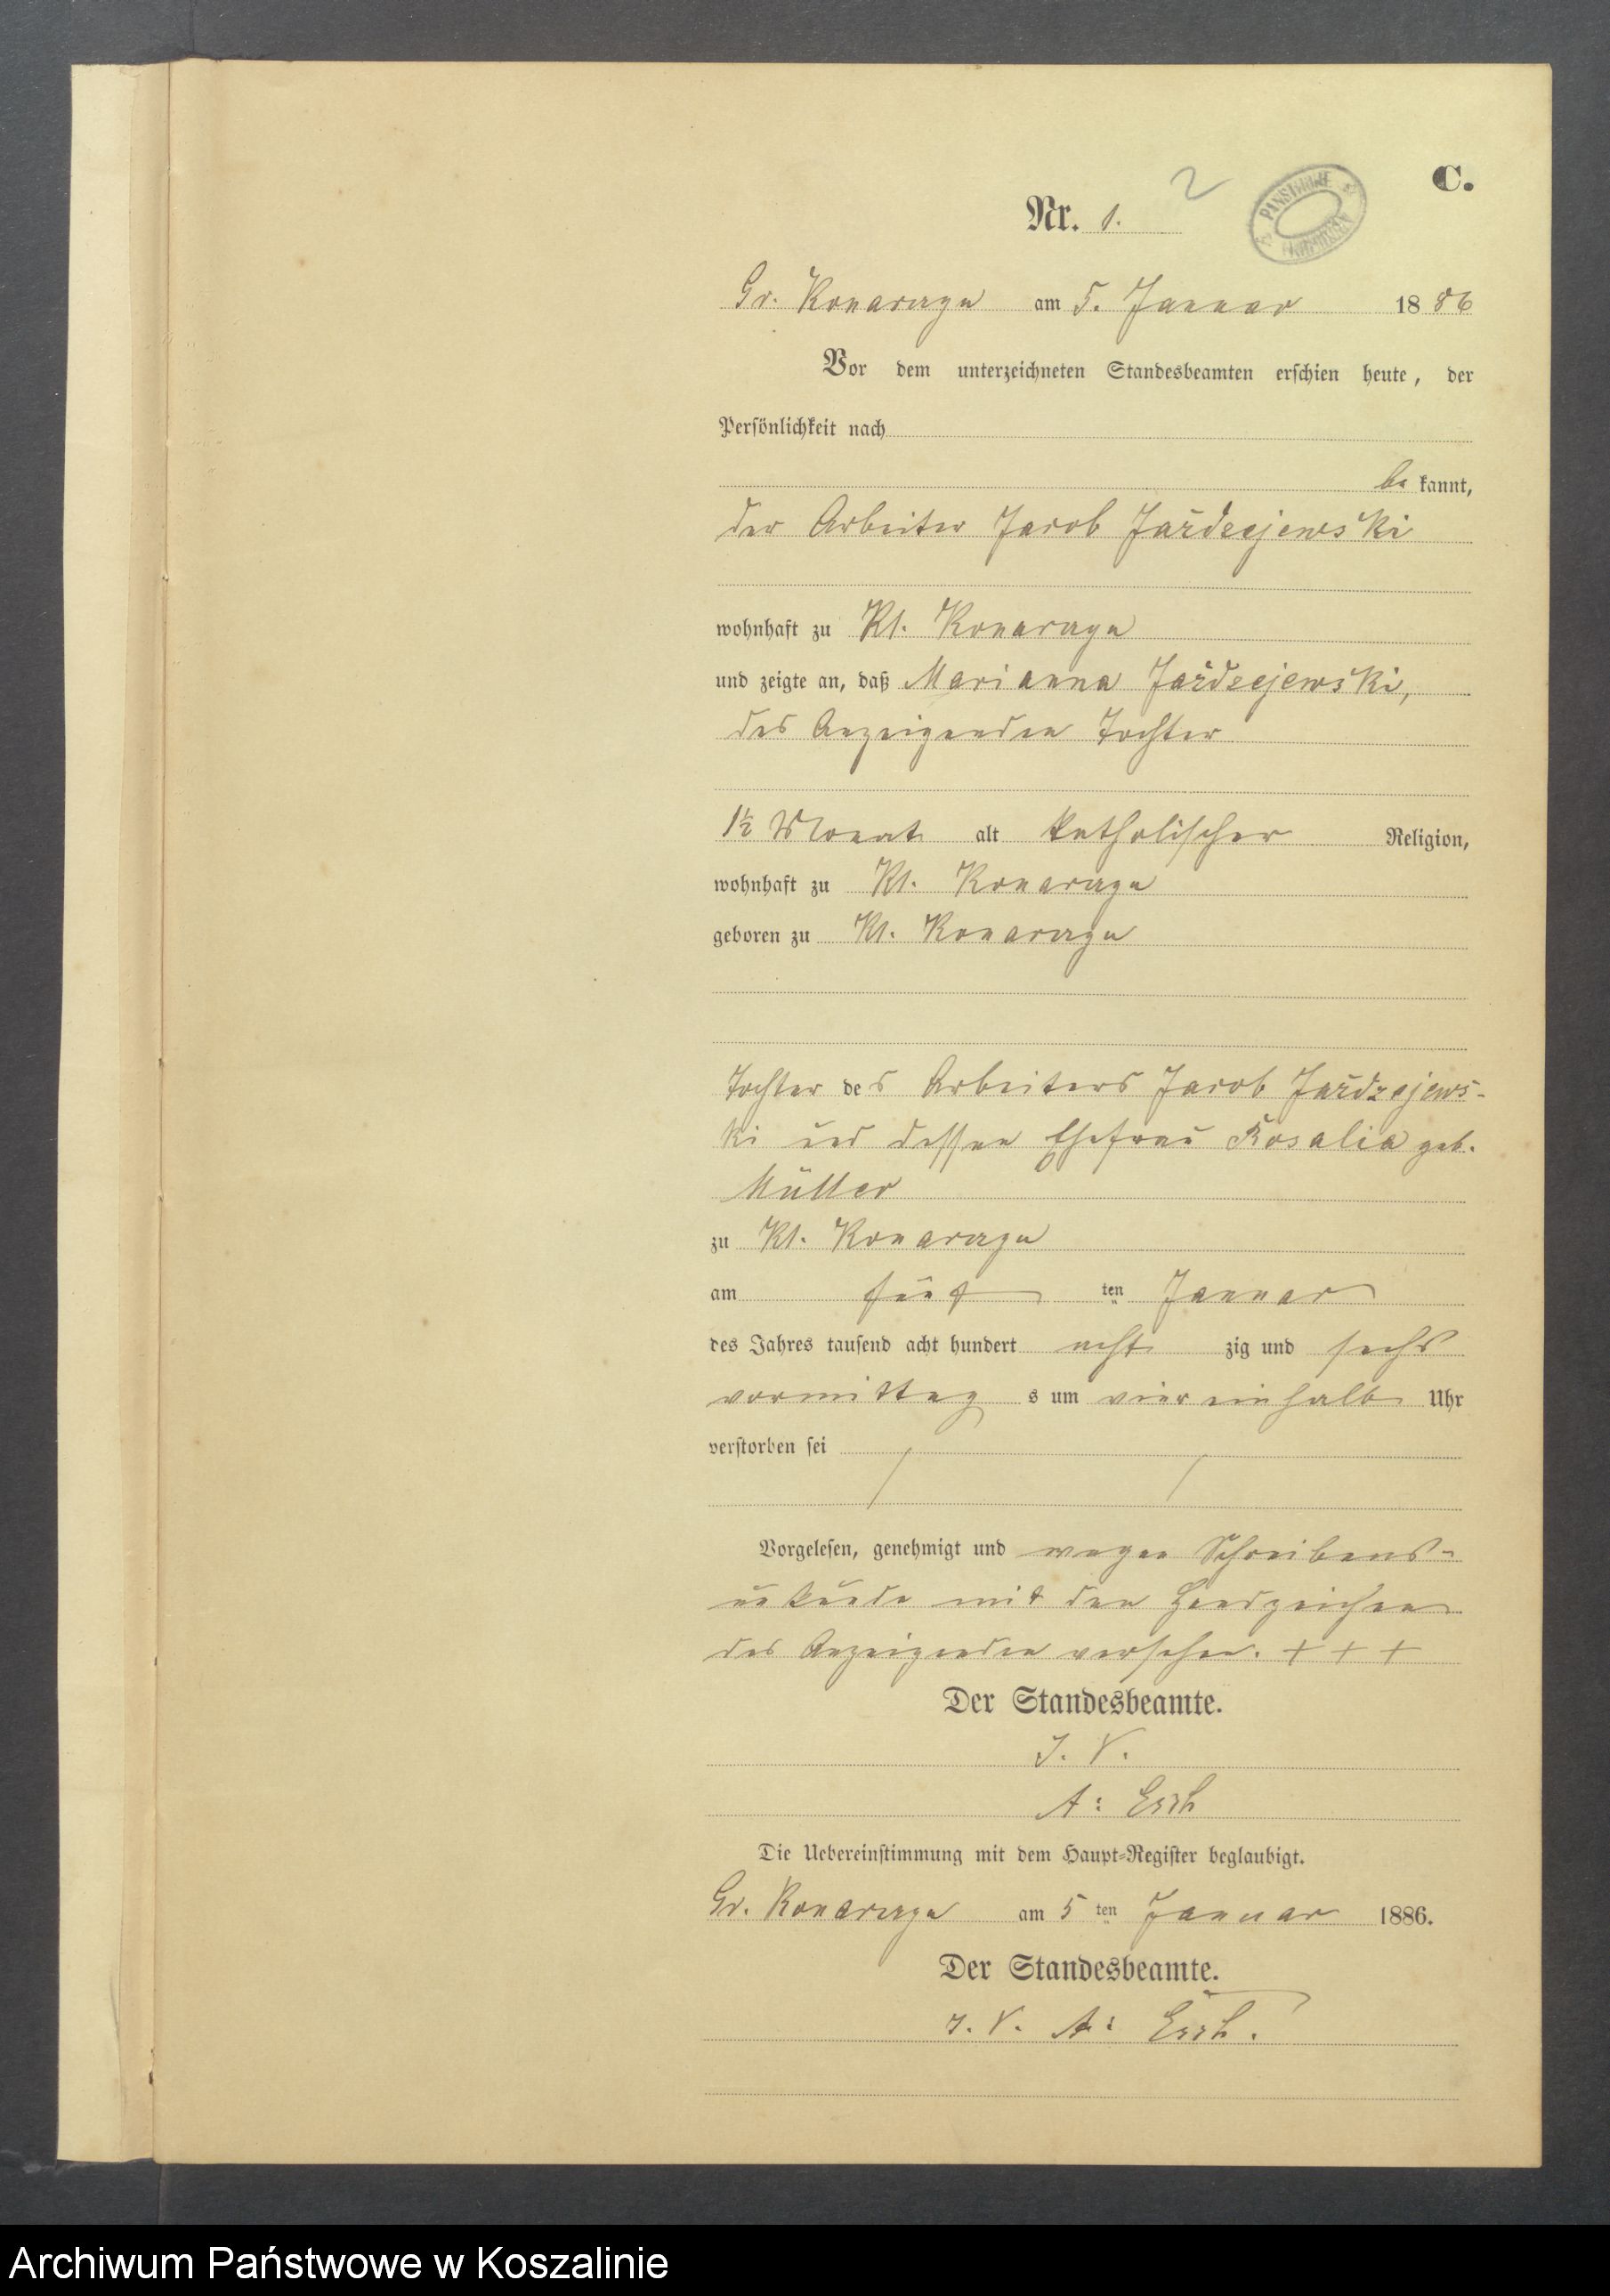 C.
2
Nr. 1.
PAŃSTWOWE
Gr. Konarczyn am 5. Januar 1886
Vor dem unterzeichneten Standesbeamten erschien heute, der
Persönlichkeit nach
be kannt,
der Arbeiter Jacob Jażdzejewski
wohnhaft zu Kl. Konarczyn
und zeigte an, daß Marianna Jażdzejewski,
des Anzeigenden Tochter
1½ Monat alt katholischer Religion,
wohnhaft zu Kl. Konarczyn
geboren zu Kl. Konarczyn
Tochter des Arbeiters Jacob Jażdzejews-
ki und dessen Ehefrau Rosalia geb.
Müller
zu Kl. Konarczyn
am fünf ten Januar
des Jahres tausend acht hundert acht zig und sechs
vormittag s um vier ein halb Uhr
verstorben sei
Vorgelesen, genehmigt und wegen Schreibens-
unkunde mit den Handzeichen
des Anzeigenden versehen. + + +
Der Standesbeamte.
I. V.
A:
Die Uebereinstimmung mit dem Haupt-Register beglaubigt.
Gr. Konarczyn am 5 ten Januar 1886.
Der Standesbeamte.
I. V. A:
Archiwum Państwowe w Koszalinie